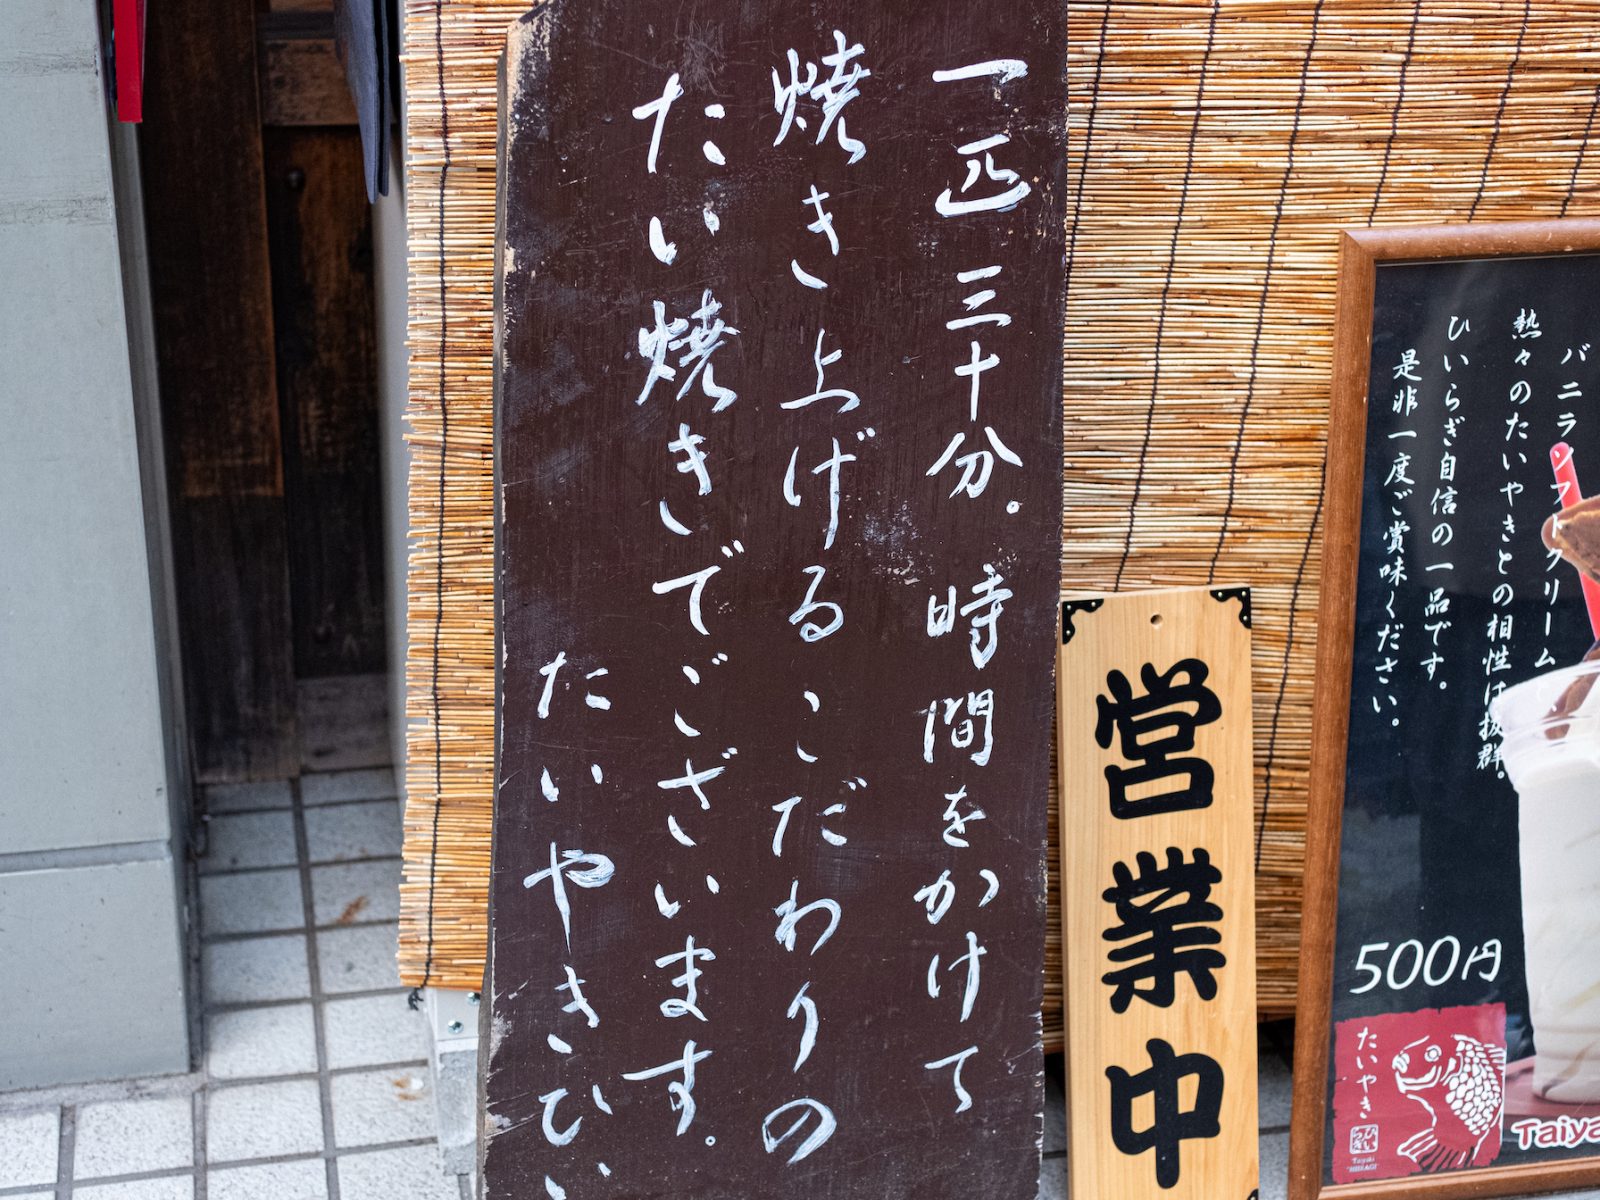 一匹三十分。時間をかけて
焼き上げるこだわりの
たい焼きでございます。
たいやきひい
営業中
バニラソフトクリーム
熱々のたいやきとの相性は抜群。
ひいらぎ自信の一品です。
是非一度ご賞味ください。
500円
たいやき
ひいらぎ
Taiyaki
"HIIRAGI"
Taiya